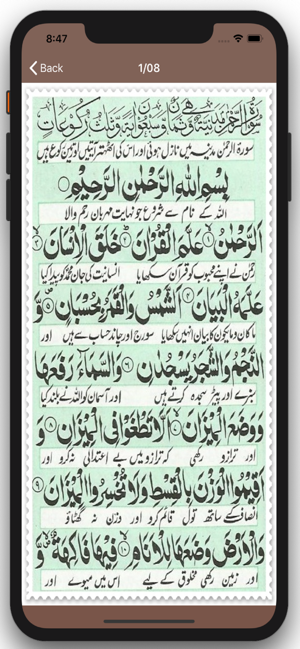 8:47
Back
1/08
سورۃ الرحمٰن مدینہ میں نازل ہوئی اور اس کی اٹھہتر آیتیں اور تین رکوع ہیں
بِسْمِ اللّٰهِ الرَّحْمٰنِ الرَّحِيْمِ
اللہ کے نام سے شروع جو نہایت مہربان رحم والا
اَلرَّحْمٰنُ ۱ عَلَّمَ الْقُرْاٰنَ ۲ خَلَقَ الْاِنْسَانَ ۳
رحمٰن نے اپنے محبوب کو قرآن سکھایا انسانیت کی جان محمد کو پیدا کیا
عَلَّمَهُ الْبَيَانَ ۴ اَلشَّمْسُ وَالْقَمَرُ بِحُسْبَانٍ ۵ وَّ
ما کان وما یکون کا بیان انہیں سکھایا سورج اور چاند حساب سے ہیں اور
النَّجْمُ وَالشَّجَرُ يَسْجُدٰنِ ۶ وَالسَّمَآءَ رَفَعَهَا
سبزے اور پیڑ سجدہ کرتے ہیں اور آسمان کو اللہ نے بلند کیا
وَوَضَعَ الْمِيْزَانَ ۷ اَلَّا تَطْغَوْا فِى الْمِيْزَانِ ۸
اور ترازو رکھی کہ ترازو میں بے اعتدالی نہ کرو اور
وَاَقِيْمُوا الْوَزْنَ بِالْقِسْطِ وَلَا تُخْسِرُوا الْمِيْزَانَ ۹
انصاف کے ساتھ تول قائم کرو اور وزن نہ گھٹاؤ
وَالْاَرْضَ وَضَعَهَا لِلْاَنَامِ ۱۰ فِيْهَا فَاكِهَةٌ وَّ
اور زمین رکھی مخلوق کے لیے اس میں میوے اور